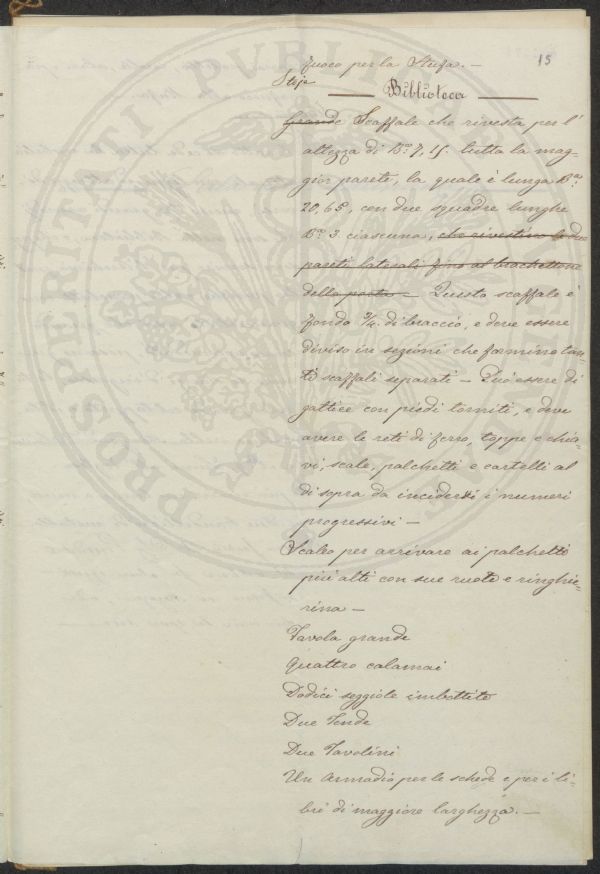 15
fuoco per la Stufa. —
Stipi
— Biblioteca —
Grande Scaffale che rivesta per l'
altezza di Bª 7, 15. tutta la mag-
gior parete, la quale è lunga Bª
20,65, con due squadre lunghe
Bª 3. ciascuna, che rivestino le due
pareti laterali fino al brachettone
della porta — Questo scaffale è
fondo 3/4. di braccio, e deve essere
diviso in sezioni che formino tan-
ti scaffali separati — Può essere di
gattice con piedi torniti, e deve
avere le reti di ferro, toppe e chia-
vi, scale, palchetti e cartelli al
di sopra da incidersi i numeri
progressivi —
Scaleo per arrivare ai palchetti
più alti con sue ruote e ringhie-
rina —
Tavola grande
Quattro calamai
Dodici seggiole imbottite
Due Tende
Due Tavolini
Un Armadio per le schede e per i li-
bri di maggiore larghezza. —
PROSPERITATI PUBLICAE